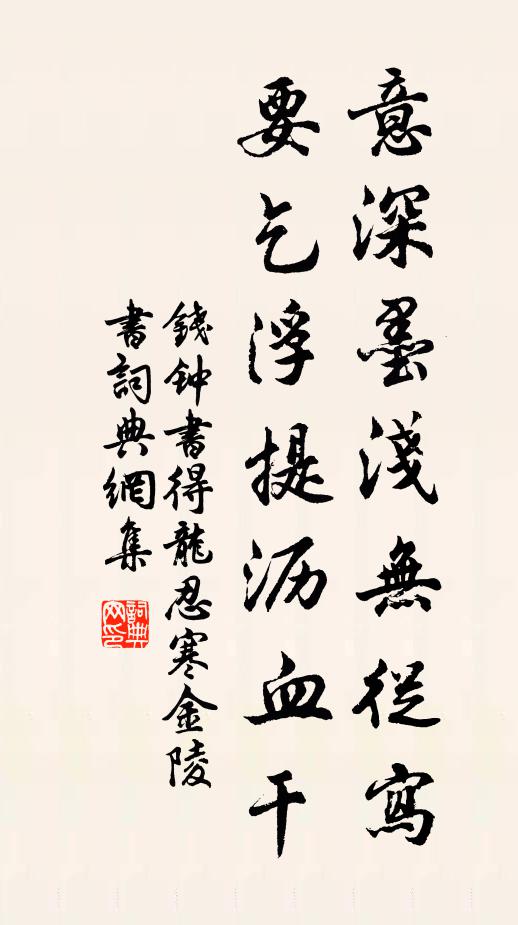 意深墨淺無從寫
要乞浮提沥血干
錢钟書得龍忍寒金陵
書詞典網集
詞典网印